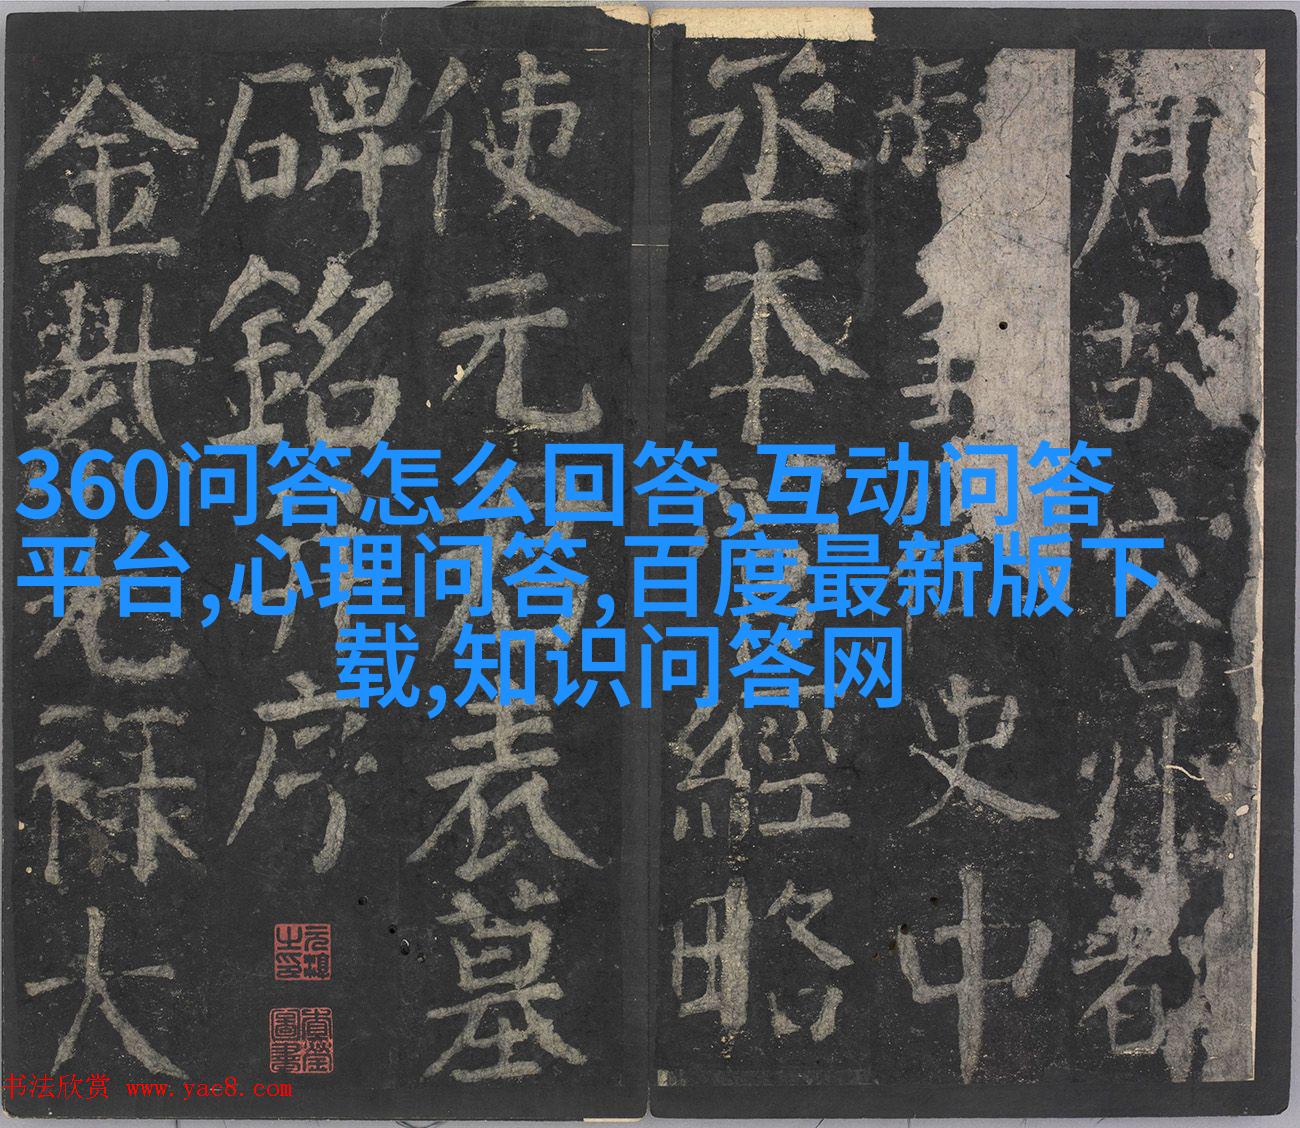 唐故容州都
史中
丞本管經略
使元君表墓
碑銘并序
金紫光祿大
360问答怎么回答,互动问答
平台,心理问答,百度最新版下
载,知识问答网
书法欣赏 www.yac8.com